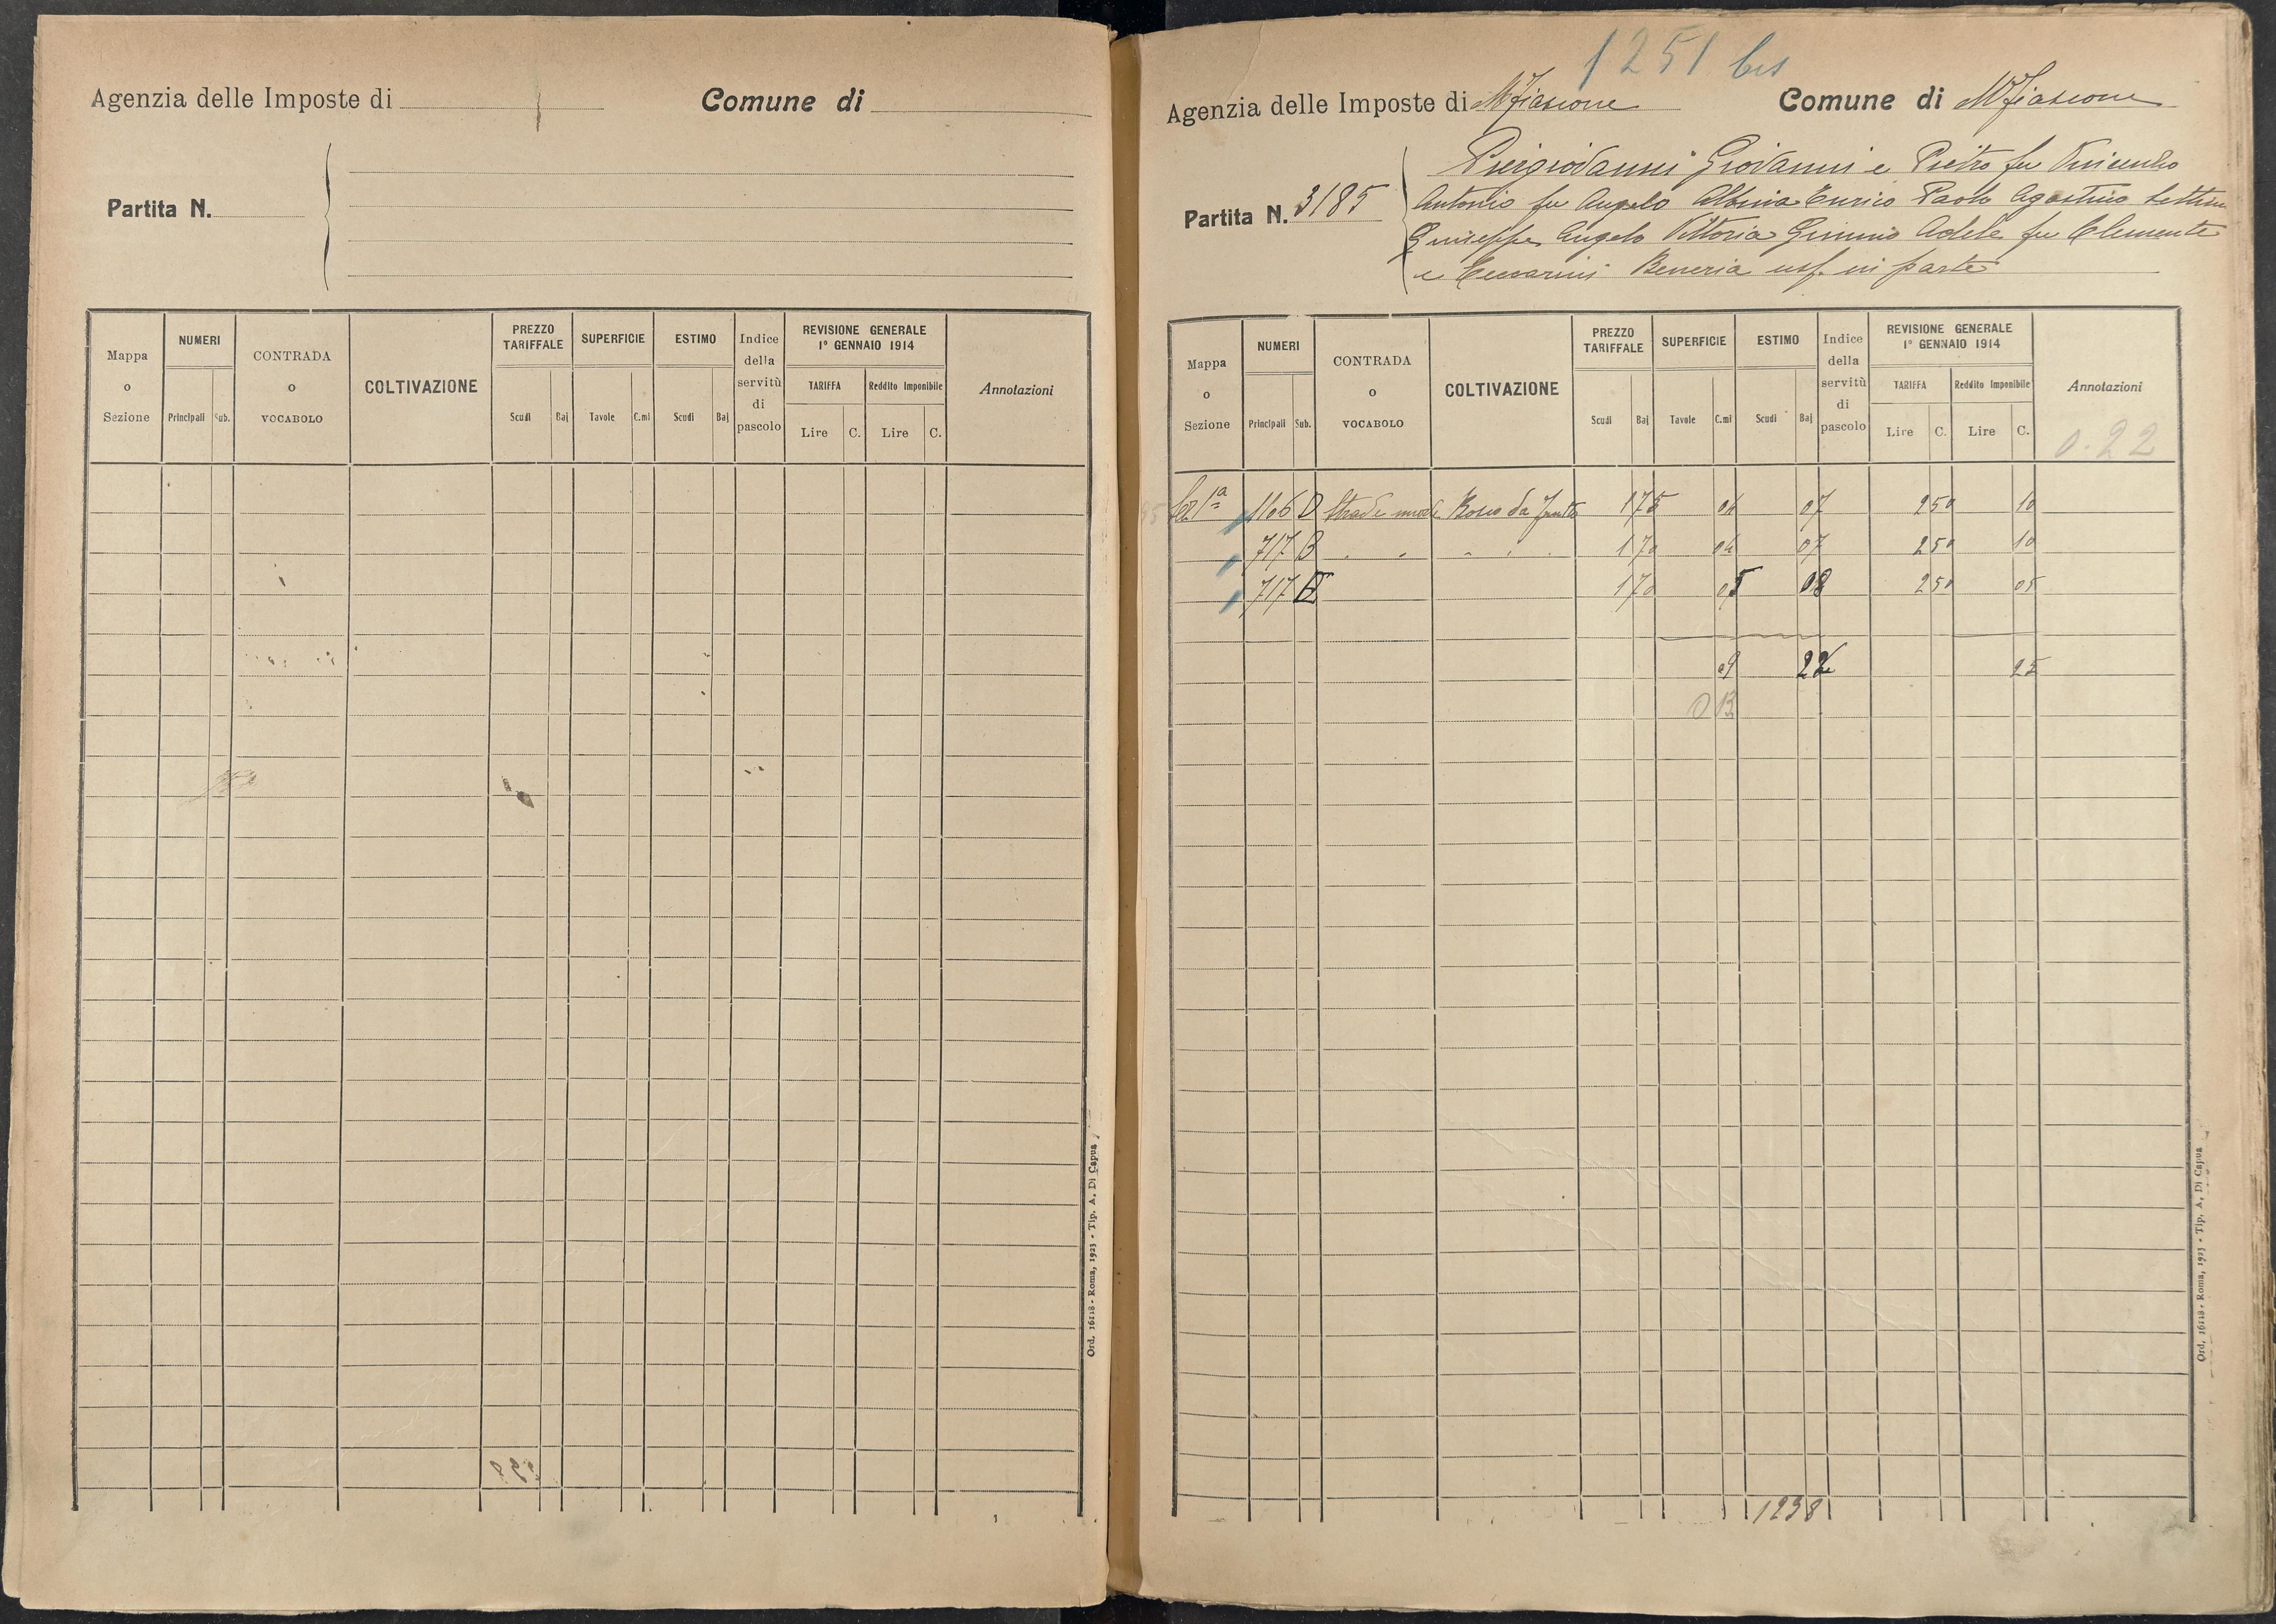 Agenzia delle Imposte di
Comune di
Partita N.
Mappa o Sezione
NUMERI
Principali Sub.
CONTRADA o VOCABOLO
COLTIVAZIONE
PREZZO TARIFFALE
Scudi Baj
SUPERFICIE
Tavole C.mi
ESTIMO
Scudi Baj
Indice della servitù di pascolo
REVISIONE GENERALE
1° GENNAIO 1914
TARIFFA Reddito Imponibile
Lire C. Lire C.
Annotazioni
Ord. 16118 - Roma, 1923 - Tip. A. Di Capua
1251 bis
Agenzia delle Imposte di Mfiascone Comune di Mfiascone
Piergiovanni Giovanni e Pietro fu Vincenzo
Partita N. 3185
Antonio fu Angelo Albina Enrico Paolo Agostino Settim
Giuseppe Angelo Vittoria Gimmio Adele fu Clemente
e Ceccarini usf. in parte
Mappa o Sezione
NUMERI
Principali Sub.
CONTRADA o VOCABOLO
COLTIVAZIONE
PREZZO TARIFFALE
Scudi Baj
SUPERFICIE
Tavole C.mi
ESTIMO
Scudi Baj
Indice della servitù di pascolo
REVISIONE GENERALE
1° GENNAIO 1914
TARIFFA Reddito Imponibile
Lire C. Lire C.
Annotazioni
0.22
Sez 1ª 1106 D Bosco da frutto 175 04 07 250 10
717 B 170 04 07 250 10
717 170 05 08 250 05
09 22 25
0 13
1238
Ord. 16118 - Roma, 1923 - Tip. A. Di Capua